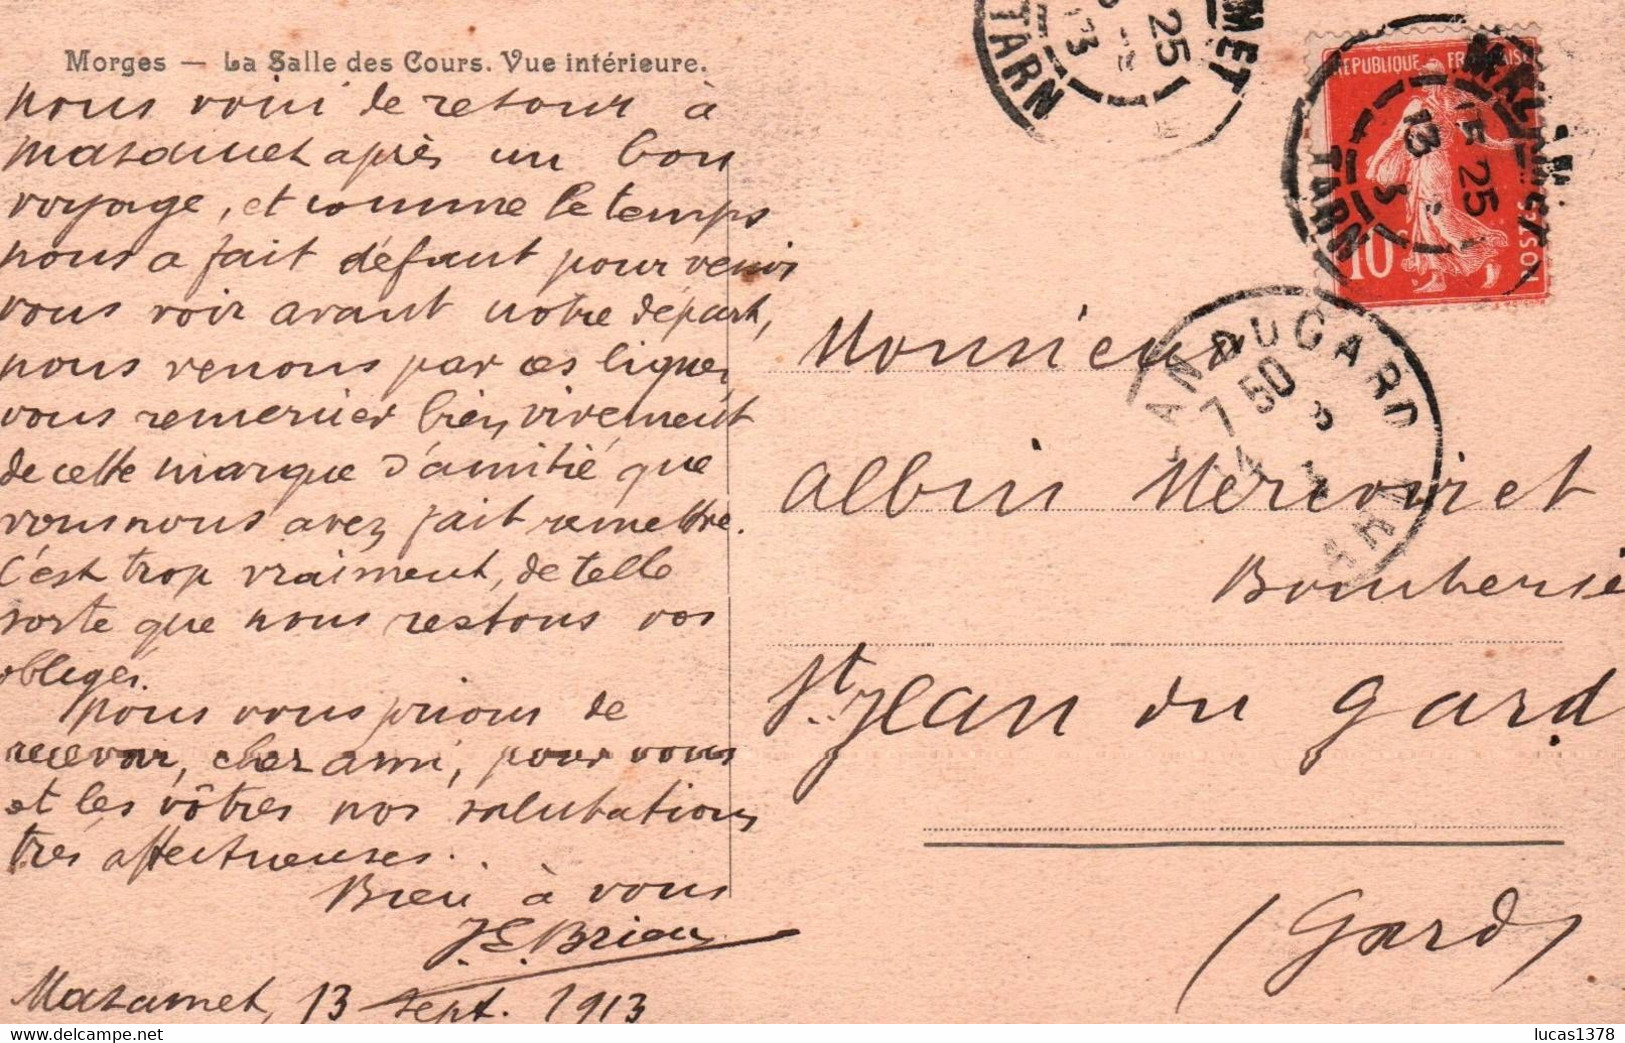 Morges — La Salle des Cours. Vue intérieure.
nous voici de retour à
Mazamet après un bon
voyage, et comme le temps
nous a fait défaut pour venir
vous voir avant notre départ,
nous venons par ces lignes
vous remercier bien vivement
de cette marque d'amitié que
vous nous avez fait remettre.
C'est trop vraiment, de telle
sorte que nous restons vos
obligés.
Nous vous prions de
recevoir, cher ami, pour vous
et les vôtres nos salutations
très affectueuses.
Bien à vous
J. E. Brieu
Mazamet, 13 sept. 1913
MET
25
13
TARN
REPUBLIQUE FRANÇAISE
10c
POSTES
MAZAMET
25
13
TARN
JEAN DU GARD
7 50
14
GARD
Monsieur
Albin Mercoiret
Boucherie
St. Jean du Gard
(Gard)
lucas1378